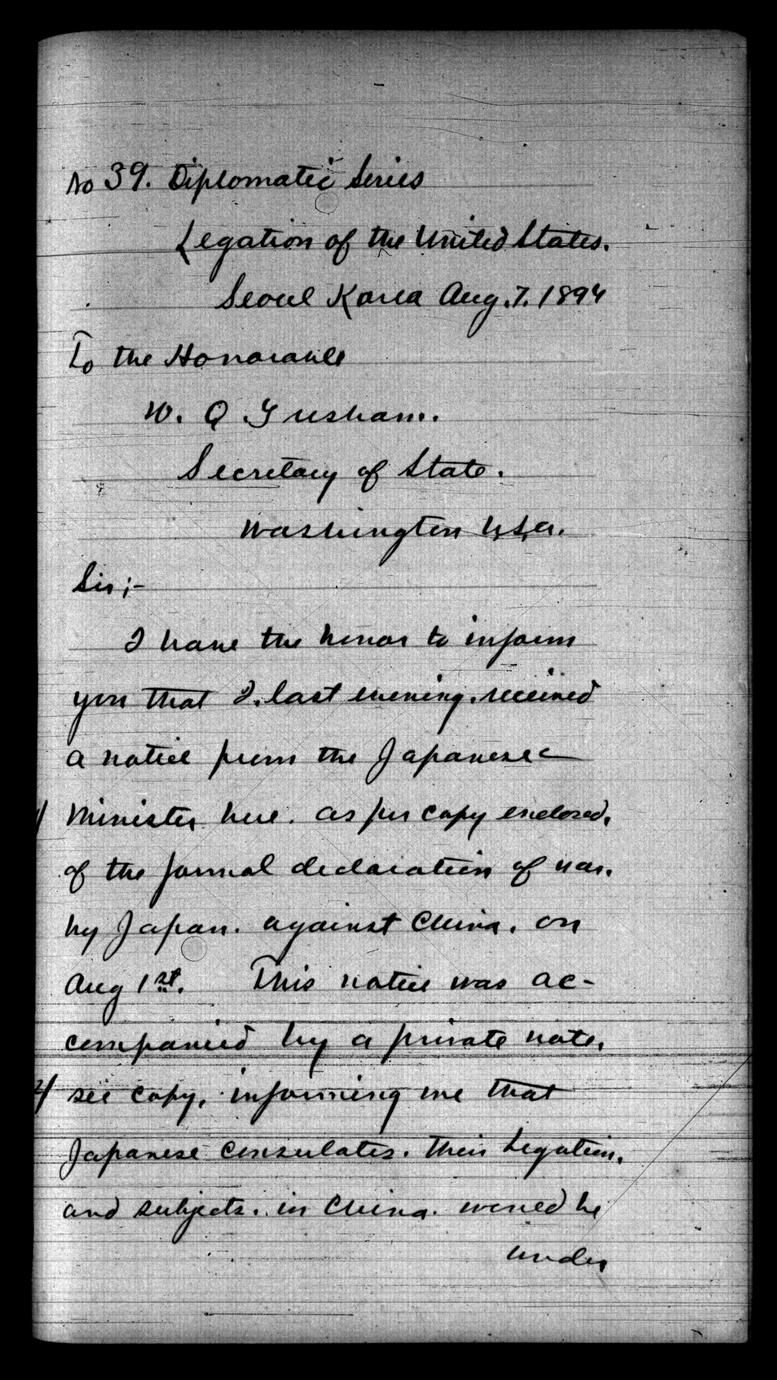 No 39. Diplomatic Series
Legation of the United States.
Seoul Korea Aug. 7. 1894
To the Honorable
W. Q Gresham.
Secretary of State.
Washington U.S.A.
Sir;-
I have the honor to inform
you that I. last evening. received
a notice from the Japanese
1/ Minister here. as per copy enclosed,
of the formal declaration of war.
by Japan. against China. on
Aug 1st. This notice was ac-
companied by a private note,
2/ see copy, informing me that
Japanese consulates. their Legation.
and subjects. in China. would be
under